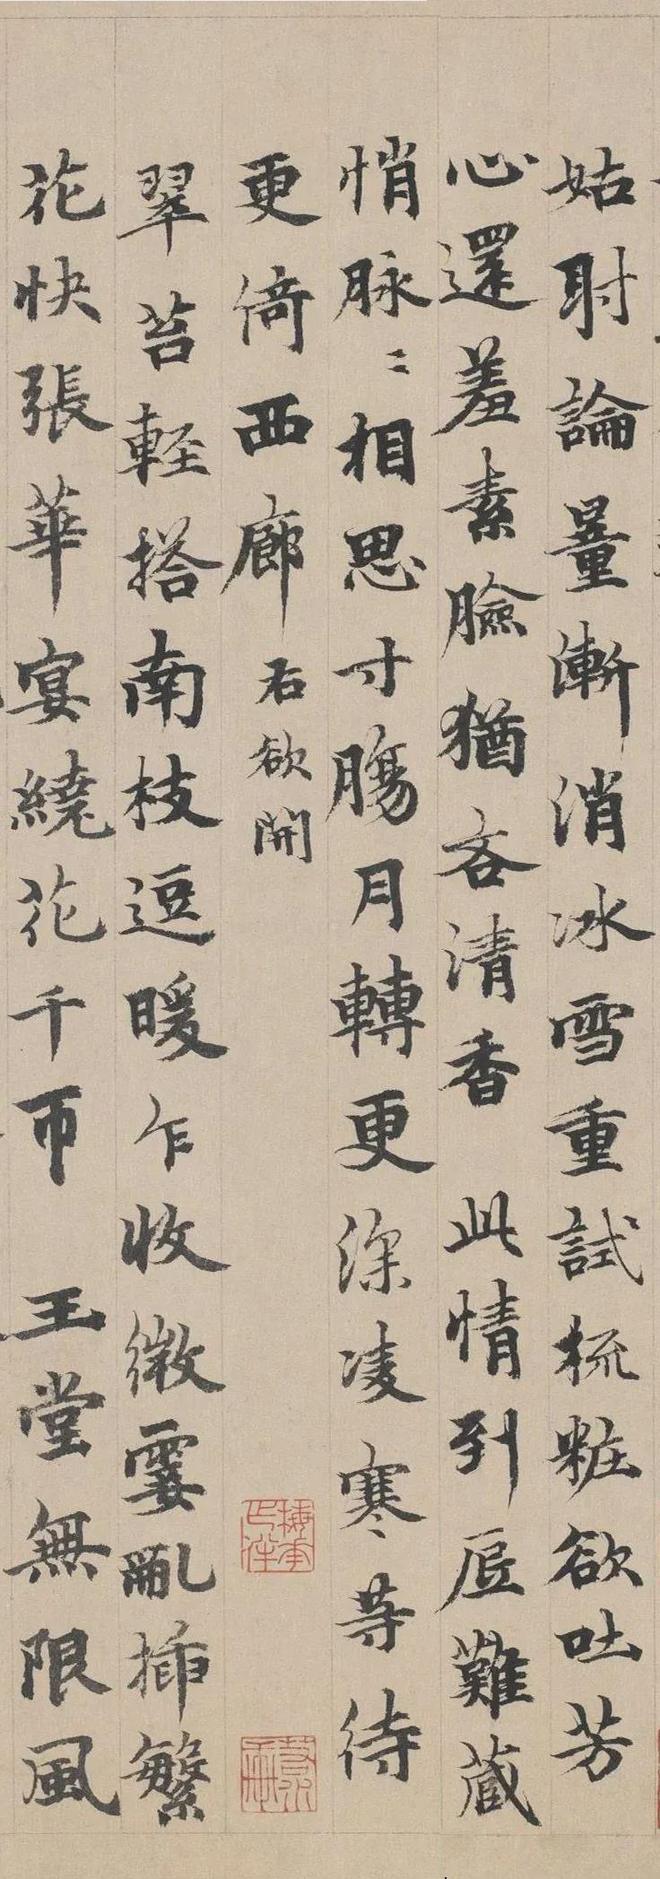 姑射論量漸消冰雪重試梳粧欲吐芳
心還羞素臉猶吝清香 此情到㡯難蔵
悄脉〻相思寸膓月轉更深凌寒等待
更倚西廊 右欲開
翠苔軽搭南枝逗暖乍收微霎亂揷繁
花快張華宴繞花千帀 玉堂無限風